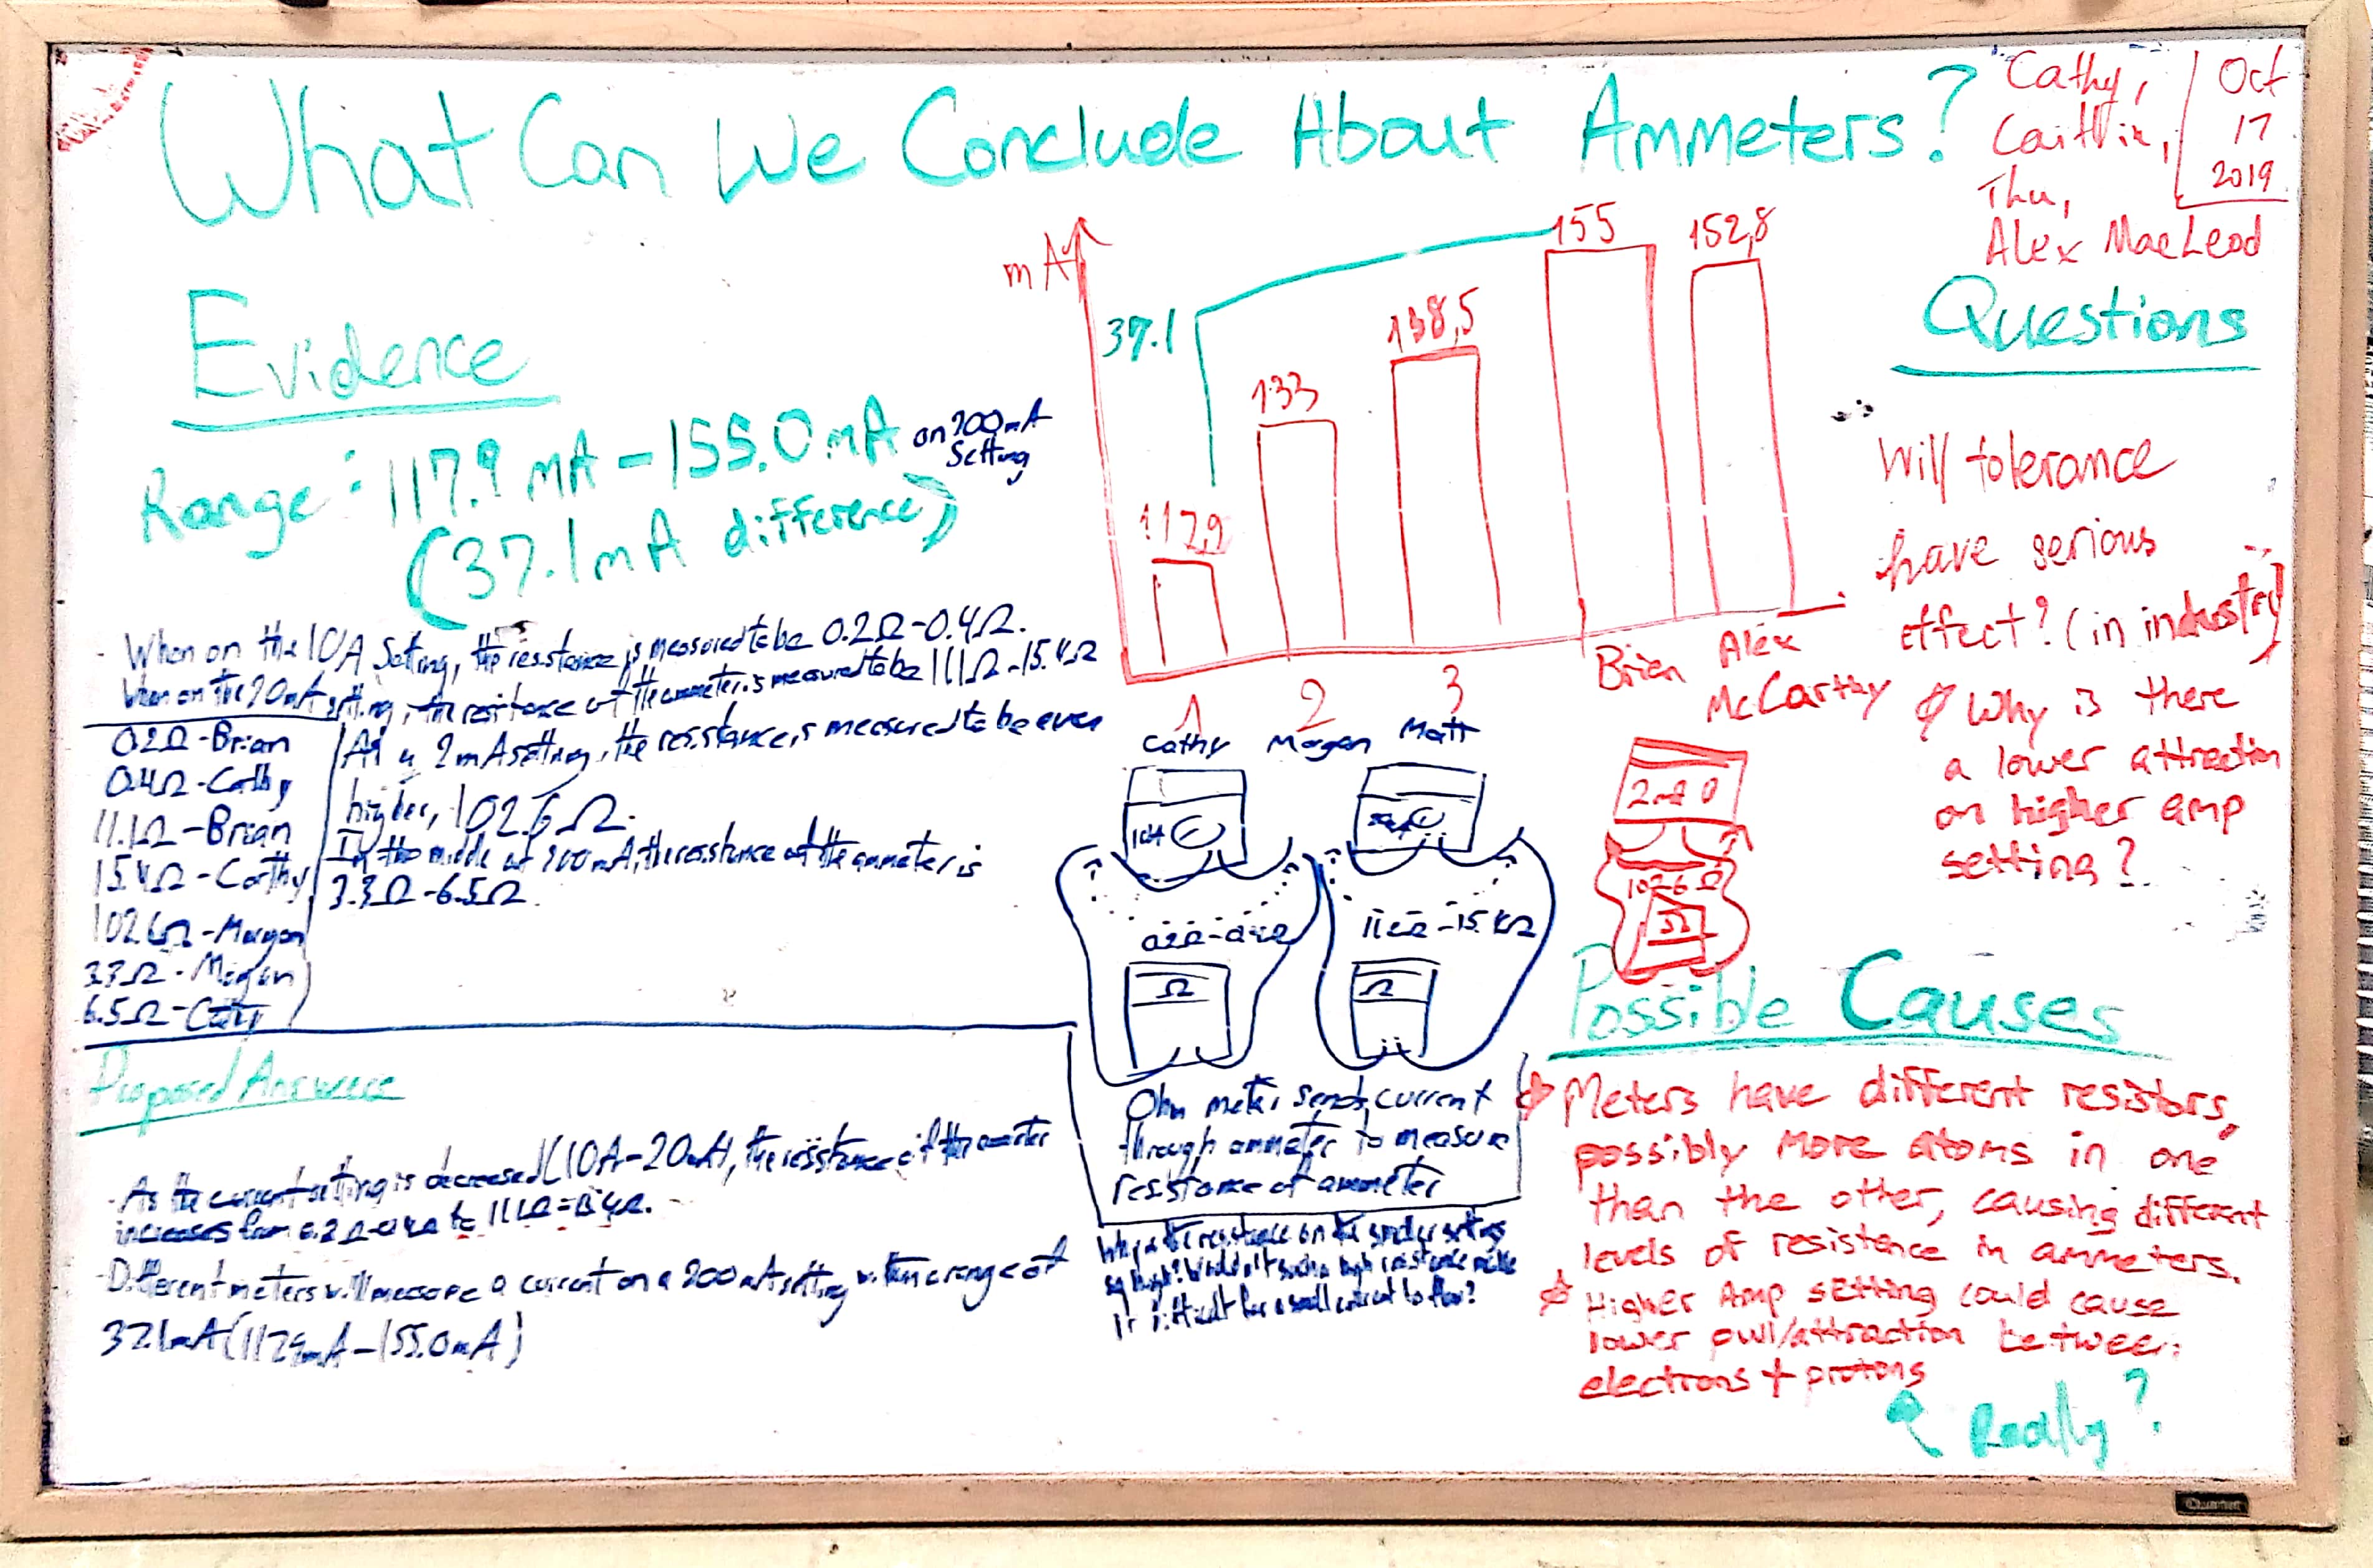 What Can We Conclude About Ammeters?
Cathy,
Caitlin,
Thu,
Alex MacLeod
Oct
17
2019
Evidence
Range: 117.9 mA - 155.0 mA on 200mA
Setting
(37.1mA difference)
When on the 10A Setting, the resistance is measured to be 0.2Ω-0.4Ω.
When on the 20mA setting, the resistance of the ammeter is measured to be 11.1Ω-15.4Ω
0.2Ω-Brian
0.4Ω-Cathy
11.1Ω-Brian
15.4Ω-Cathy
102.6Ω-Morgan
3.3Ω-Morgan
6.5Ω-Cathy
2mA setting, the resistance is measured to be even
higher, 102.6Ω.
In the middle at 200mA, the resistance of the ammeter is
3.3Ω-6.5Ω.
mA
37.1
117,9
133
138,5
155
152,8
1
2
3
Brien
Alex
McCarthy
Cathy
Morgan
Matt
10A
0.2Ω-0.4Ω
11.1Ω-15.4Ω
Ω
Ω
2mA
102.6Ω
Ω
Ohm meter sends current
through ammeter to measure
resistance of ammeter
Why is the resistance on the smaller settings
so high? Wouldn't such a high resistance make
it difficult for a small current to flow?
Questions
Will tolerance
have serious
effect? (in industry)
Why is there
a lower attraction
on higher amp
setting?
Possible Causes
Meters have different resistors,
possibly more atoms in one
than the other, causing different
levels of resistence in ammeters.
Higher Amp setting could cause
lower pull/attraction between
electrons + protons
Really?
Proposed Answers
- As the current setting is decreased (10A-20mA), the resistance of the ammeter
increases from 0.2Ω-0.4Ω to 11.1Ω-15.4Ω.
- Different meters will measure a current on a 200mA setting within a range of
37.1mA (117.9mA-155.0mA)
Quartet